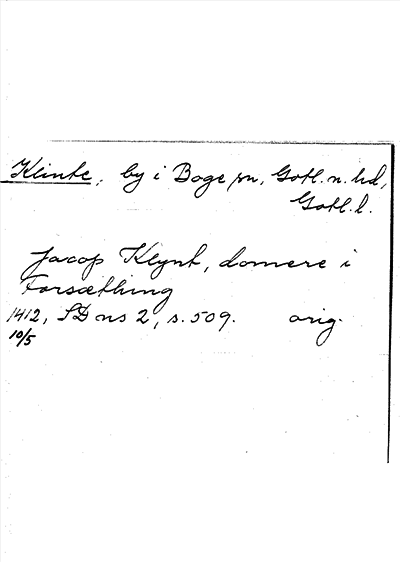 Klinte, by i Boge sn, Gotl. n. hd,
Gotl. l.
Jacop Klynt, domere i
Forsæthing
1412, SD ns 2, s. 509. orig.
10/5